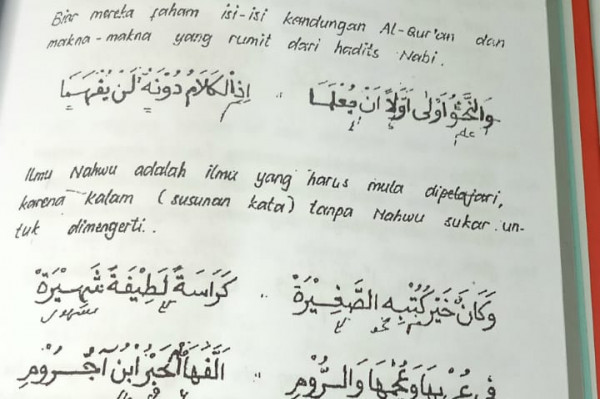 Biar mereka faham isi-isi kandungan Al-Qur'an dan
makna-makna yang rumit dari hadits Nabi.
وَالنَّحْوُ أَوْلَى أَوَّلًا أَنْ يُعْلَمَا .. إِذِ الْكَلَامُ دُوْنَهُ لَنْ يُفْهَمَا
Ilmu Nahwu adalah ilmu yang harus mula dipelajari,
karena kalam (susunan kata) tanpa Nahwu sukar un-
tuk dimengerti..
وَكَانَ خَيْرُ كُتْبِهِ الصَّغِيْرَةْ .. كُرَّاسَةً لَطِيْفَةً شَهِيْرَةْ
فِي عُرْبِهَا وَعُجْمِهَا وَالرُّوْمِ .. أَلَّفَهَا الْحَبْرُ ابْنُ آجُرُّوْمِ